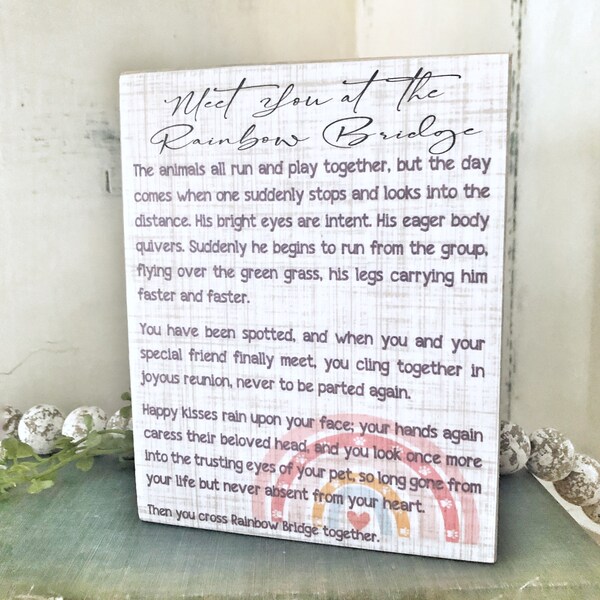 Meet You at the
Rainbow Bridge
The animals all run and play together, but the day
comes when one suddenly stops and looks into the
distance. His bright eyes are intent. His eager body
quivers. Suddenly he begins to run from the group,
flying over the green grass, his legs carrying him
faster and faster.
You have been spotted, and when you and your
special friend finally meet, you cling together in
joyous reunion, never to be parted again.
Happy kisses rain upon your face; your hands again
caress their beloved head, and you look once more
into the trusting eyes of your pet, so long gone from
your life but never absent from your heart.
Then you cross Rainbow Bridge together.